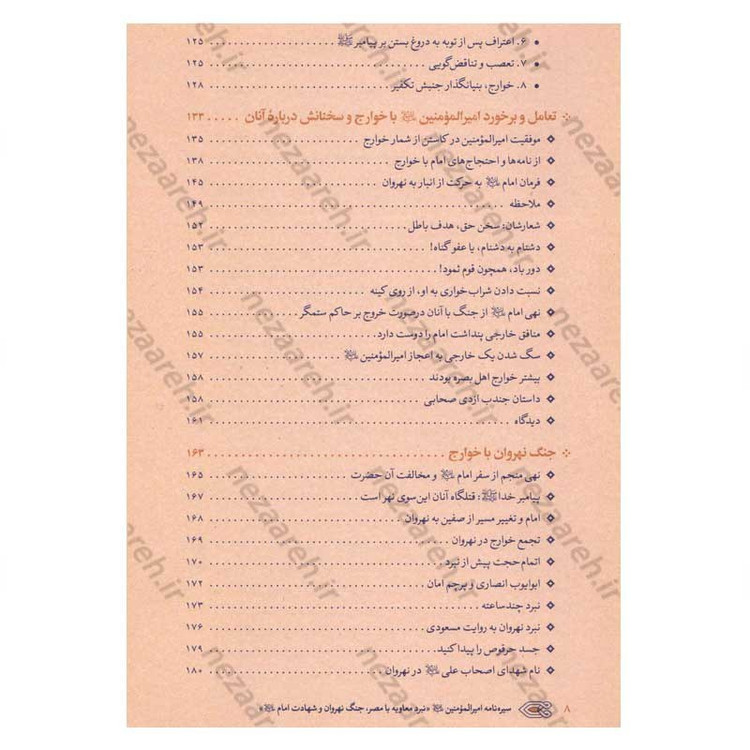 ۶. اعتراف پس از توبه به دروغ بستن بر پیامبر ﷺ ۱۲۵
۷. تعصب و تناقض‌گویی ۱۲۵
۸. خوارج، بنیانگذار جنبش تکفیر ۱۲۸
تعامل و برخورد امیرالمؤمنین با خوارج و سخنانش دربارهٔ آنان ۱۳۳
موفقیت امیرالمؤمنین در کاستن از شمار خوارج ۱۳۵
از نامه‌ها و احتجاج‌های امام با خوارج ۱۳۸
فرمان امام به حرکت از انبار به نهروان ۱۴۵
ملاحظه ۱۴۹
شعارشان: سخن حق، هدف باطل ۱۵۲
دشنام به دشنام، یا عفو گناه! ۱۵۳
دور باد، همچون قوم ثمود! ۱۵۳
نسبت دادن شراب خواری به او، از روی کینه ۱۵۴
نهی امام از جنگ با آنان درصورت خروج بر حاکم ستمگر ۱۵۵
منافق خارجی پنداشت امام را دوست دارد ۱۵۵
سگ شدن یک خارجی به اعجاز امیرالمؤمنین ۱۵۷
بیشتر خوارج اهل بصره بودند ۱۵۸
داستان جندب ازدی صحابی ۱۵۸
دیدگاه ۱۶۱
جنگ نهروان با خوارج ۱۶۳
نهی منجم از سفر امام و مخالفت آن حضرت ۱۶۵
پیامبر خدا ﷺ: قتلگاه آنان این‌سوی نهر است ۱۶۷
امام و تغییر مسیر از صفین به نهروان ۱۶۸
تجمع خوارج در نهروان ۱۶۹
اتمام‌حجت پیش از نبرد ۱۷۰
ابوایوب انصاری و پرچم امان ۱۷۲
نبرد چندساعته ۱۷۳
نبرد نهروان به روایت مسعودی ۱۷۶
جسد حرقوص را پیدا کنید ۱۷۹
نام شهدای اصحاب علی در نهروان ۱۸۰
۸ سیره‌نامه امیرالمؤمنین «نبرد معاویه با مصر، جنگ نهروان و شهادت امام»
nezaareh.ir